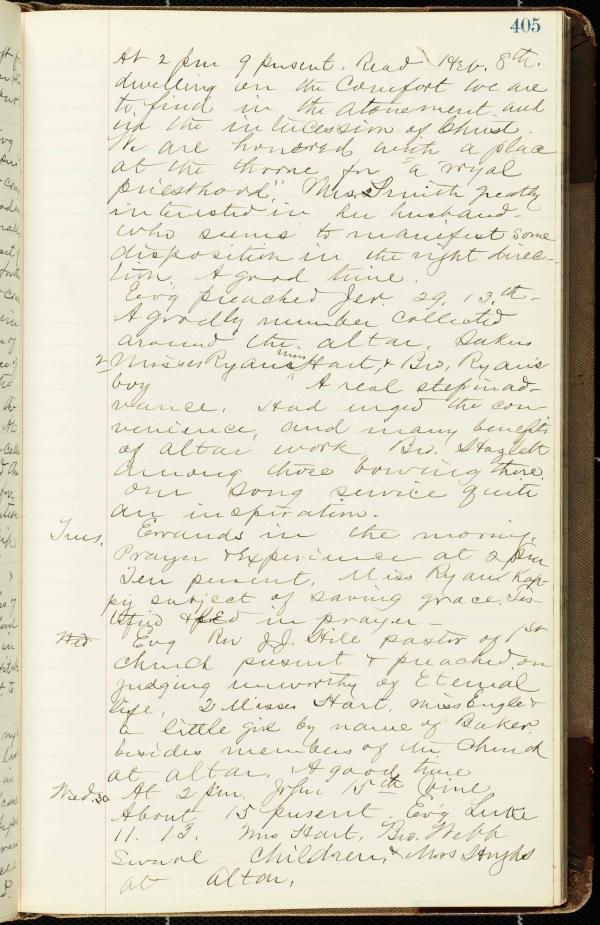 405
At 2 pm 9 present. Read Heb. 8th.
dwelling on the comfort we are
to find in the atonement and
in the intercession of Christ.
We are honored with a place
at the throne for "a royal
priesthood". Mrs. Smith greatly
interested in her husband-
who seems to manifest some
disposition in the right direc-
tion. A good time.
Ev'g preached Jer. 29, 13th-
A goodly number collected
around the altar.
2 Misses Ryans Miss Hart, & Bro. Ryan's
boy A real step in ad-
vance. Had urged the con-
venience, and many benefits
of altar work Bro. Hazlett
among those bowing there.
Our song service quite
an inspiration.
Tues. Errands in the morning.
Prayer & Experience at 2 pm
Ten present. Miss Ryan hap-
py subject of saving grace. Tes-
tified & led in prayer-
Wed Evg Rev J.J. Hill pastor of 1st
church present & preached on
judging unworthy of Eternal
life. 2 Misses Hart, Miss Engle &
a little girl by name of Baker
besides members of the Church
at altar. A good time
Wed. 30 At 2 pm. John 15th Vine
About 15 present Ev'g Luke
11. 13. Mrs Hart, Bro. Webb
Several children, & Mrs Hughs
at altar.